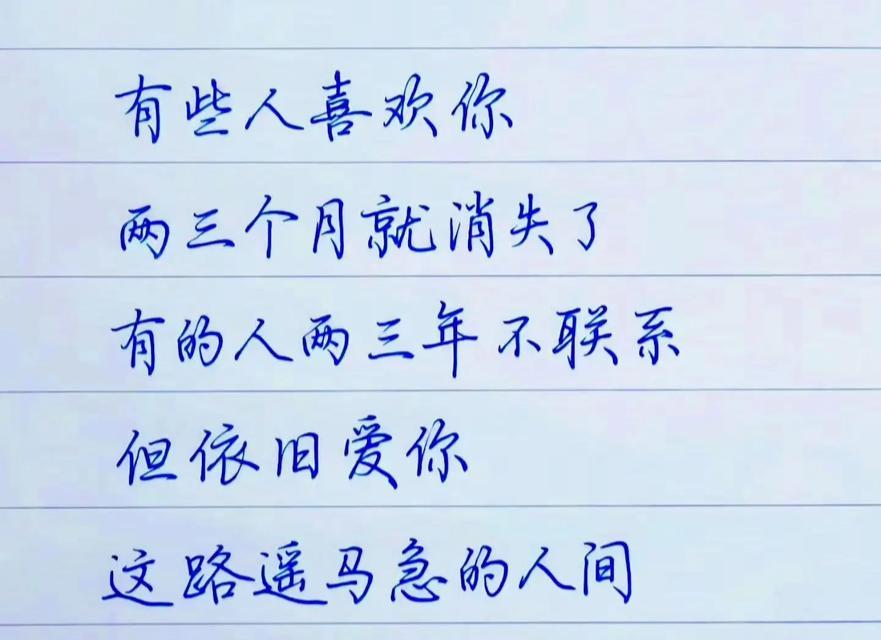 有些人喜欢你
两三个月就消失了
有的人两三年不联系
但依旧爱你
这路遥马急的人间